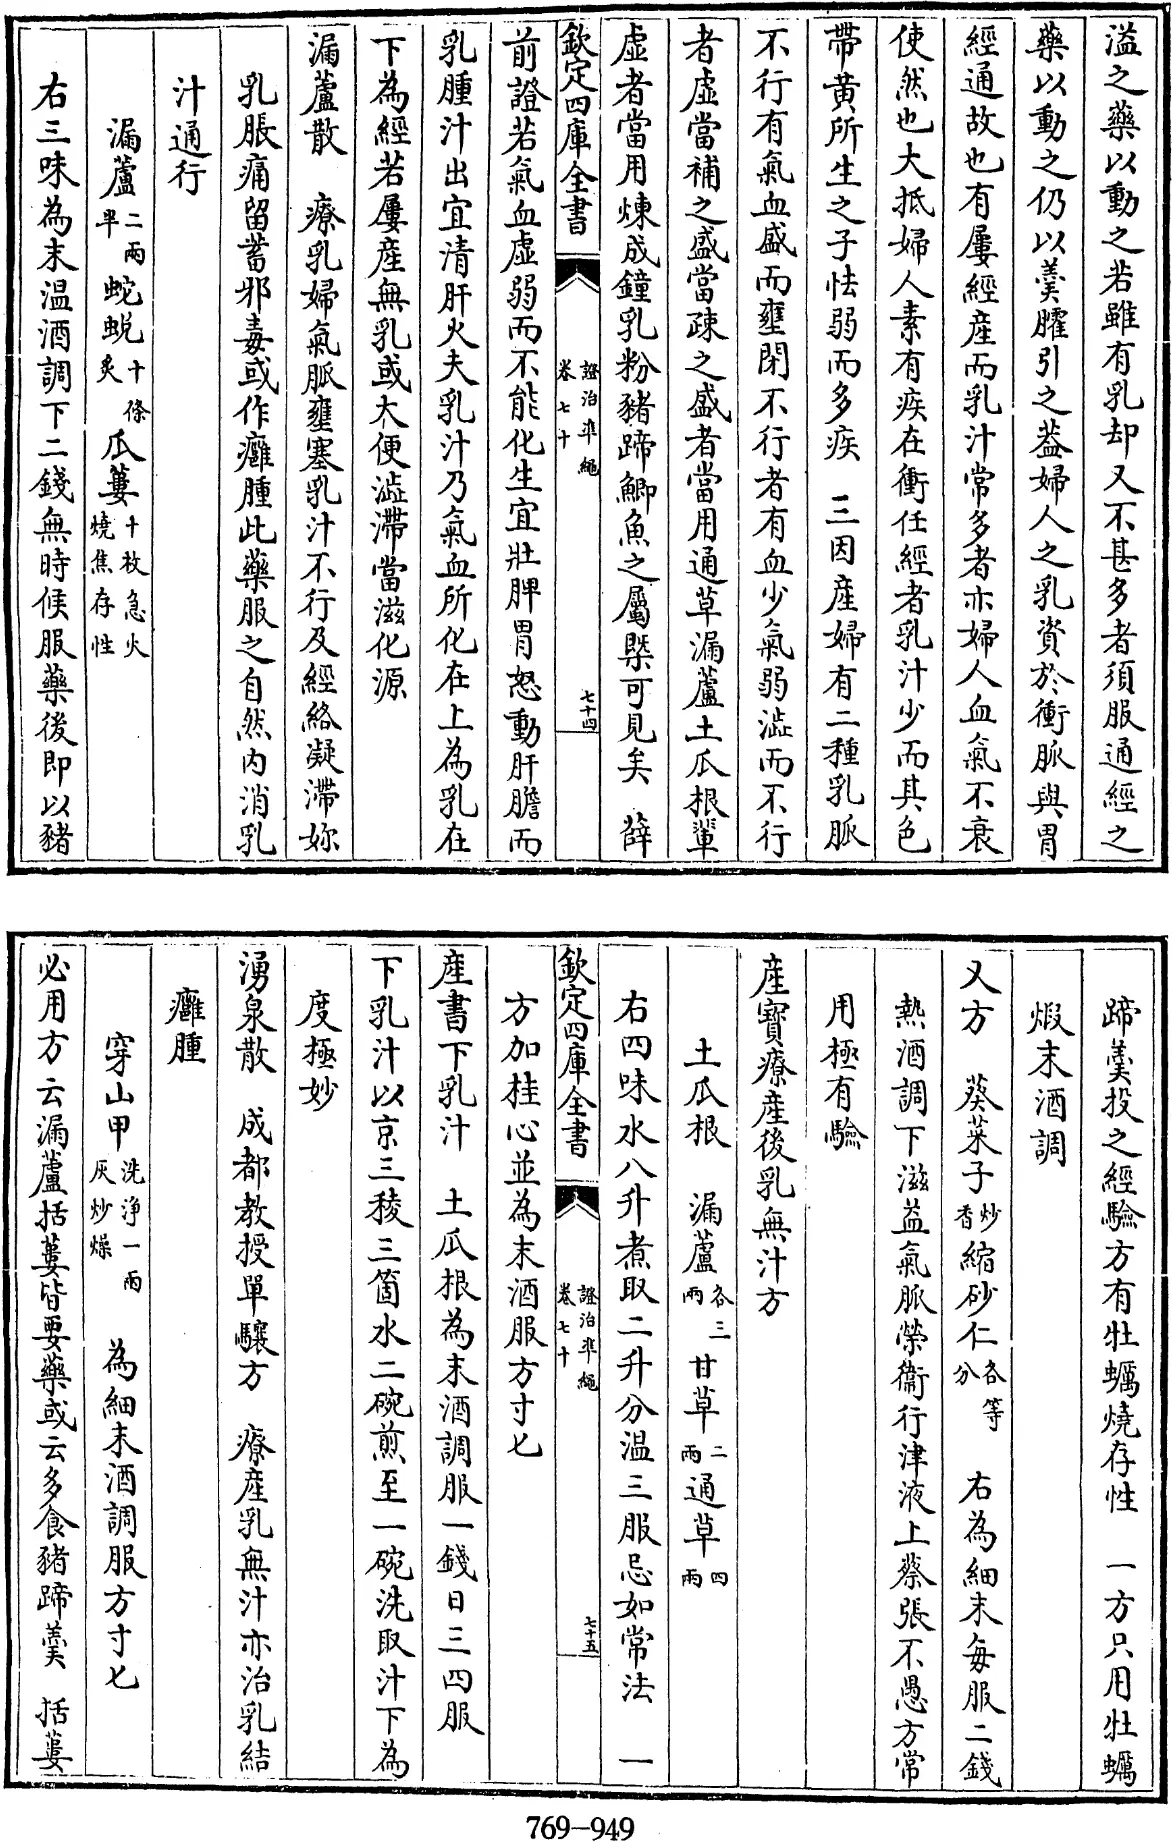 溢之藥以動之若雖有乳却又不甚多者須服通經之
藥以動之仍以羹臛引之葢婦人之乳資於衝脈與胃
經通故也有屢經産而乳汁常多者亦婦人血氣不衰
使然也大抵婦人素有疾在衝任經者乳汁少而其色
帶黄所生之子怯弱而多疾　三因産婦有二種乳脈
不行有氣血盛而壅閉不行者有血少氣弱澁而不行
者虚當補之盛當疎之盛者當用通草漏蘆土瓜根輩
虚者當用煉成鐘乳粉豬蹄鯽魚之屬槩可見矣　薛
欽定四庫全書　證治準繩　卷七十　七十四
前證若氣血虚弱而不能化生宜壯脾胃怒動肝膽而
乳腫汁出宜清肝火夫乳汁乃氣血所化在上為乳在
下為經若屢産無乳或大便澁滯當滋化源
漏蘆散　療乳婦氣脈壅塞乳汁不行及經絡凝滯妳
乳脹痛留蓄邪毒或作癰腫此藥服之自然内消乳
汁通行
漏蘆二兩半　蛇蛻十條炙　瓜蔞十枚急火燒焦存性
右三味為末温酒調下二錢無時候服藥後即以豬
蹄羹投之經驗方有牡蠣燒存性　一方只用牡蠣
煅末酒調
又方　葵菜子炒香　縮砂仁各等分　右為細末每服二錢
熱酒調下滋益氣脈榮衞行津液上蔡張不愚方常
用極有驗
産寶療産後乳無汁方
土瓜根　漏蘆各三兩　甘草二兩　通草四兩
右四味水八升煮取二升分温三服忌如常法　一
欽定四庫全書　證治準繩　卷七十　七十五
方加桂心並為末酒服方寸匕
産書下乳汁　土瓜根為末酒調服一錢日三四服
下乳汁以京三稜三箇水二碗煎至一碗洗取汁下為
度極妙
湧泉散　成都教授單驤方　療産乳無汁亦治乳結
癰腫
穿山甲洗浄一兩灰炒燥　為細末酒調服方寸匕
必用方云漏蘆括蔞皆要藥或云多食豬蹄羹　括蔞
769-949